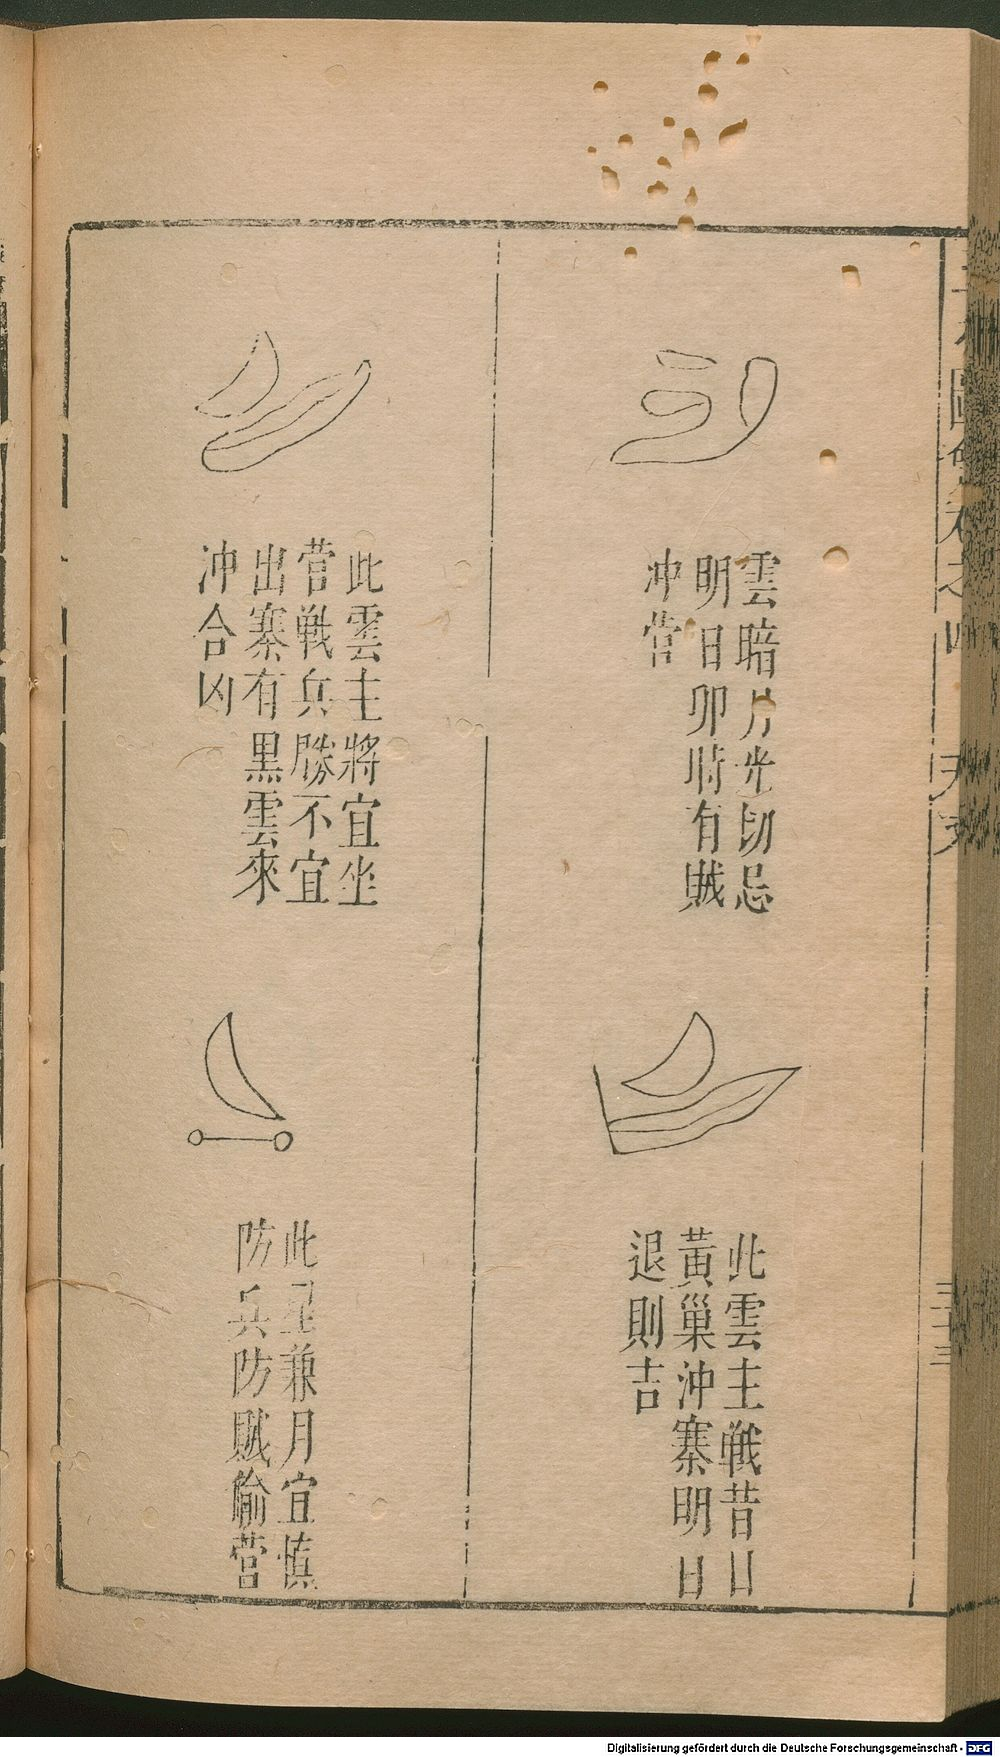 雲暗片光切忌
明日卯時有賊
冲營
此雲主戰昔日
黃巢冲寨明日
退則吉
此雲主將宜坐
营戦兵勝不宜
出寨有黑雲來
冲合凶
此星兼月宜慎
防兵防賊偷营
圖會
卷之四
天文
三十三
Digitalisierung gefördert durch die Deutsche Forschungsgemeinschaft - DFG